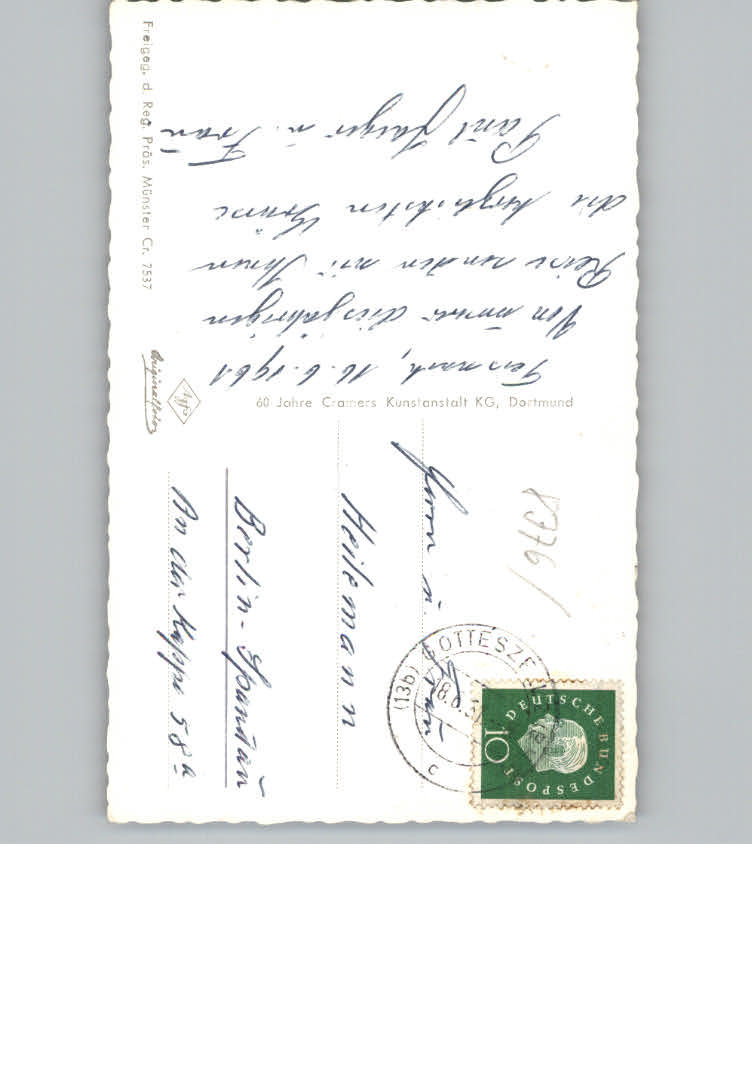 16.6.1961
Von unserer diesjährigen
Reise senden wir Ihnen
die herzlichsten Grüße
Paul Jaeger u. Frau
60 Jahre Cramers Kunstanstalt KG, Dortmund
Freigeg. d. Reg. Präs. Münster Cr. 7537
Agfa
Originalfoto
Herrn u. Frau
Heilemann
Berlin-Spandau
An der Kappe 58a
(13b) GOTTESZELL
c
DEUTSCHE BUNDESPOST
10